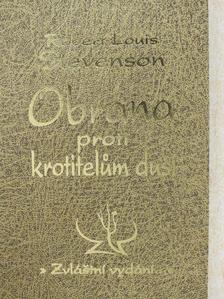 Robert Louis
Stevenson
Obrana
proti
krotitelům duší
» Zvláštní vydání... «